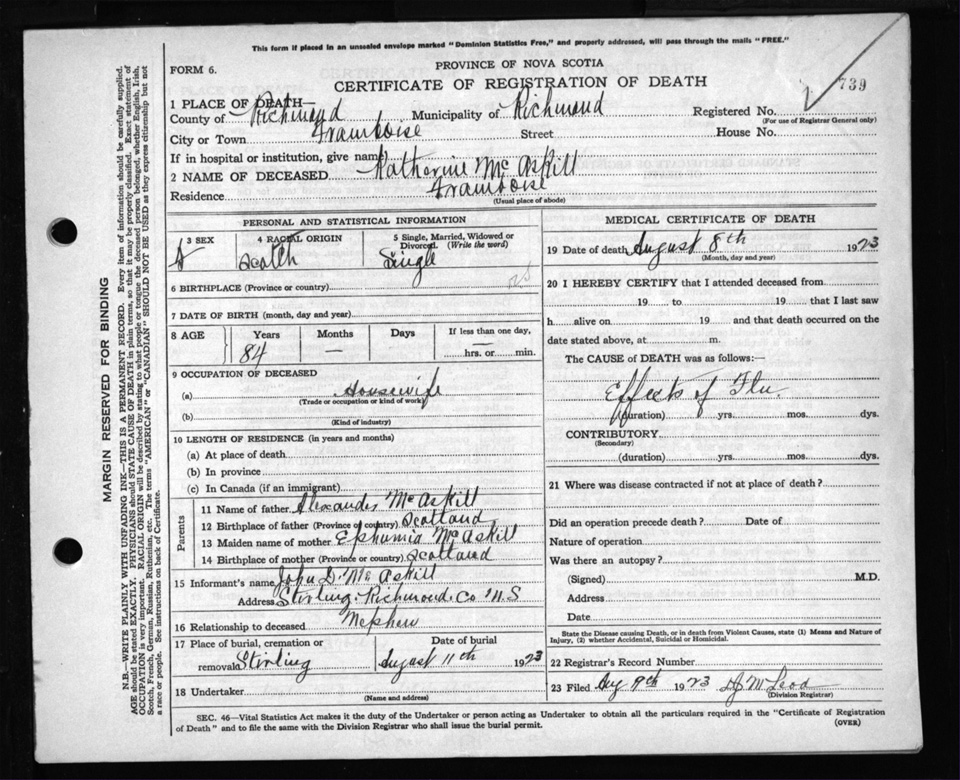 This form if placed in an unsealed envelope marked "Dominion Statistics Free," and properly addressed, will pass through the mails "FREE."
FORM 6.
PROVINCE OF NOVA SCOTIA
CERTIFICATE OF REGISTRATION OF DEATH
739
1 PLACE OF DEATH—
County of Richmond Municipality of Richmond Registered No.
(For use of Registrar General only)
City or Town Framboise Street House No.
If in hospital or institution, give name
2 NAME OF DECEASED Katherine McAskill
Residence Framboise
(Usual place of abode)
PERSONAL AND STATISTICAL INFORMATION
3 SEX 4 RACIAL ORIGIN 5 Single, Married, Widowed or Divorced. (Write the word)
f Scotch Single
6 BIRTHPLACE (Province or country) NS
7 DATE OF BIRTH (month, day and year)
8 AGE Years Months Days If less than one day,
84 — — hrs. or min.
9 OCCUPATION OF DECEASED
(a) Housewife
(Trade or occupation or kind of work)
(b)
(Kind of industry)
10 LENGTH OF RESIDENCE (in years and months)
(a) At place of death
(b) In province
(c) In Canada (if an immigrant)
Parents
11 Name of father Alexander McAskill
12 Birthplace of father (Province or country) Scotland
13 Maiden name of mother Ephumia McAskill
14 Birthplace of mother (Province or country) Scotland
15 Informant's name John D. McAskill
Address Stirling Richmond Co N.S
16 Relationship to deceased Nephew
17 Place of burial, cremation or removal Date of burial
Stirling August 11th 1923
18 Undertaker
(Name and address)
MEDICAL CERTIFICATE OF DEATH
19 Date of death August 8th 1923
(Month, day and year)
20 I HEREBY CERTIFY that I attended deceased from
19 to 19 that I last saw
h alive on 19 and that death occurred on the
date stated above, at m.
The CAUSE of DEATH was as follows:—
Effects of Flu
(duration) yrs. mos. dys.
CONTRIBUTORY
(Secondary)
(duration) yrs. mos. dys.
21 Where was disease contracted if not at place of death?
Did an operation precede death? Date of
Nature of operation
Was there an autopsy?
(Signed) M.D.
Address
Date
State the Disease causing Death, or in death from Violent Causes, state (1) Means and Nature of
Injury, (2) whether Accidental, Suicidal or Homicidal.
22 Registrar's Record Number
23 Filed Aug 9th 1923 D J McLeod
(Division Registrar)
SEC. 46—Vital Statistics Act makes it the duty of the Undertaker or person acting as Undertaker to obtain all the particulars required in the "Certificate of Registration
of Death" and to file the same with the Division Registrar who shall issue the burial permit.
(OVER)
MARGIN RESERVED FOR BINDING
N.B.—WRITE PLAINLY WITH UNFADING INK—THIS IS A PERMANENT RECORD. Every item of information should be carefully supplied.
AGE should be stated EXACTLY. PHYSICIANS should STATE CAUSE OF DEATH in plain terms, so that it may be properly classified. Exact statement of
OCCUPATION is very important. RACIAL ORIGIN will be described by stating to what people or tongue the deceased person belonged, whether English, Irish,
Scotch, French, German, Russian, Ruthenian, etc. The terms "AMERICAN" or "CANADIAN" SHOULD NOT BE USED as they express citizenship but not
a race or people. See instructions on back of Certificate.